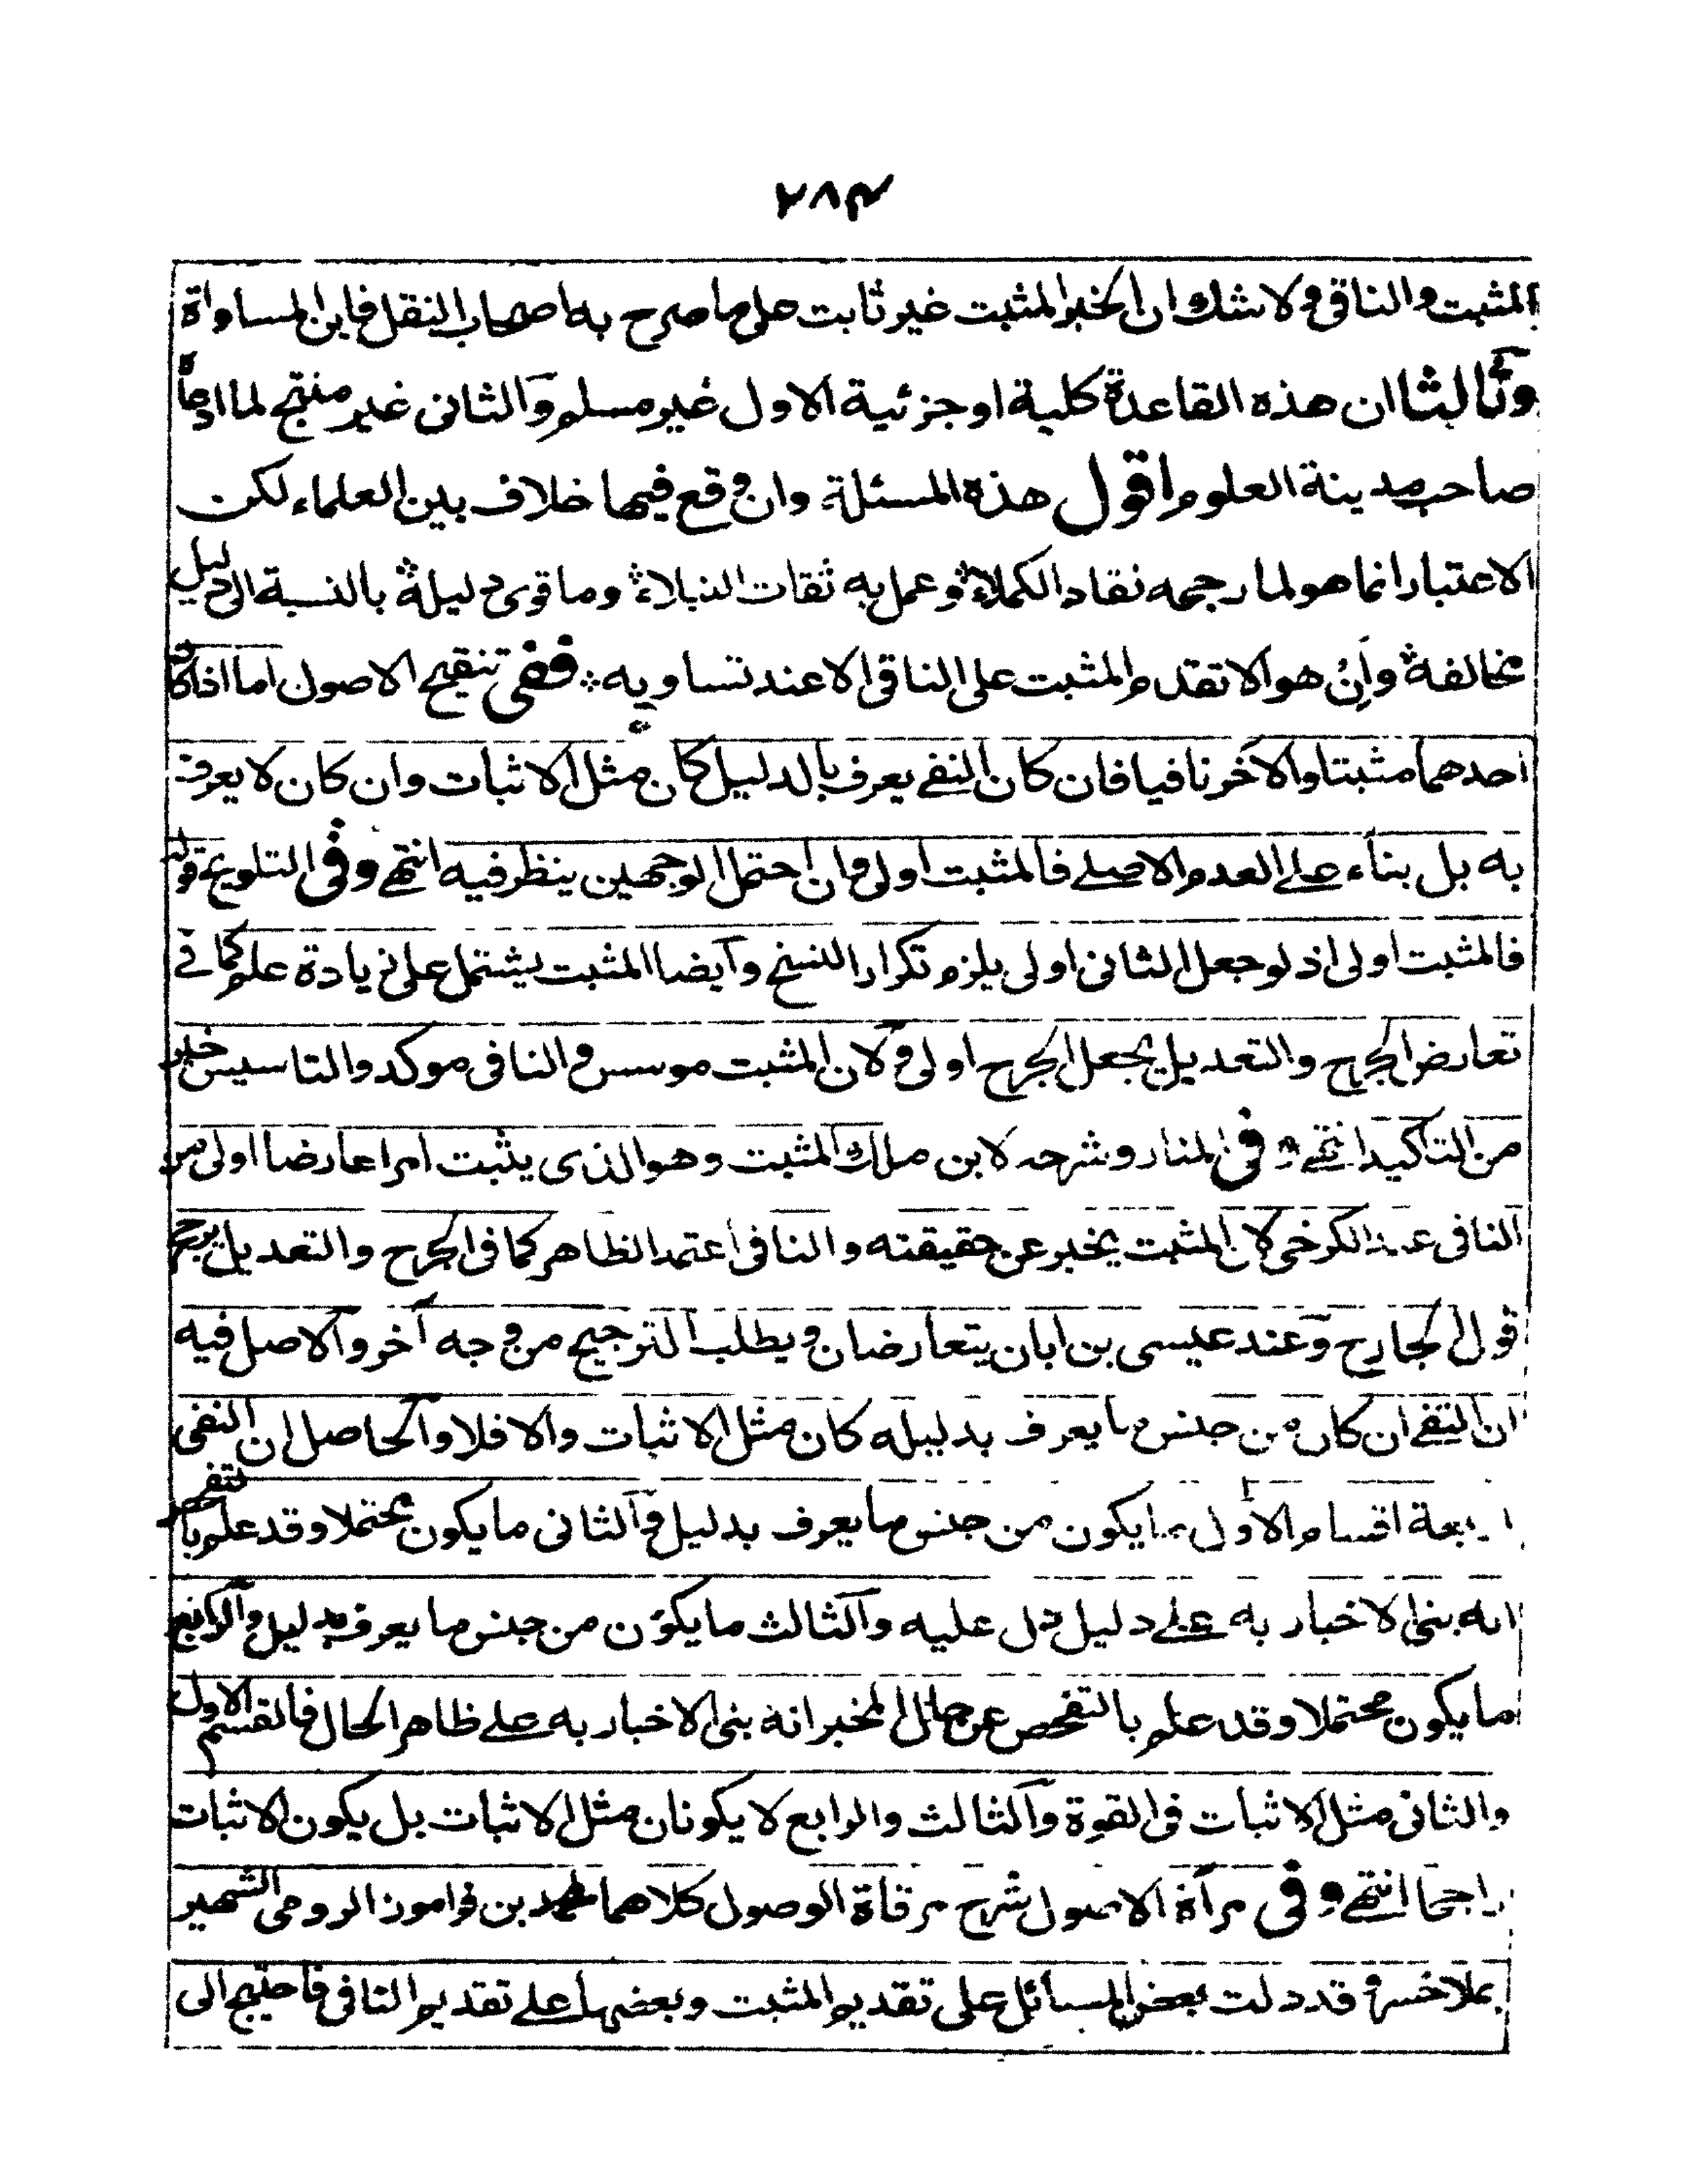 ٢٨٤
المثبت والنافي ولا شك ان الخبر المثبت غير ثابت على ما صرح به اصحاب النقل فاين المساواة
وثالثا ان هذه القاعدة كلية او جزئية الاول غير مسلم والثاني غير منتج لما ادعاه
صاحب مدينة العلوم اقول هذه المسئلة وان وقع فيها خلاف بين العلماء لكن
الاعتبار انما هو لما رجحه نقاد الكملاء وعمل به ثقات النبلاء وما قوى دليله بالنسبة الى دليل
مخالفه وان هو الا تقدم المثبت على النافي الا عند تساويه ففي تنقيح الاصول اما اذا كان
احدهما مثبتا والآخر نافيا فان كان النفي يعرف بالدليل كان مثل الاثبات وان كان لا يعرف
به بل بناء على العدم الاصلي فالمثبت اولى وان احتمل الوجهين ينظر فيه انتهى وفي التلويح قوله
فالمثبت اولى اذ لو جعل الثاني اولى يلزم تكرار النسخ وايضا المثبت يشتمل على زيادة علم كما في
تعارض الجرح والتعديل يجعل الجرح اولى ولان المثبت موسس والنافي موكد والتاسيس خير
من التاكيد انتهى وفي المنار وشرحه لابن ملك المثبت وهو الذي يثبت امرا عارضا اولى من
النافي عند الكرخي لان المثبت يخبر عن حقيقته والنافي اعتمد الظاهر كما في الجرح والتعديل يرجح
قول الجارح وعند عيسى بن ابان يتعارضان ويطلب الترجيح من وجه آخر والاصل فيه
ان النفي ان كان من جنس ما يعرف بدليله كان مثل الاثبات والا فلا والحاصل ان النفي
اربعة اقسام الاول ما يكون من جنس ما يعرف بدليل والثاني ما يكون محتملا وقد علم بالتفحص
انه بنى الاخبار به على دليل دل عليه والثالث ما يكون من جنس ما يعرف بدليل والرابع
ما يكون محتملا وقد علم بالتفحص عن حال المخبر انه بنى الاخبار به على ظاهر الحال فالقسم الاول
والثاني مثل الاثبات في القوة والثالث والرابع لا يكونان مثل الاثبات بل يكون الاثبات
راجحا انتهى وفي مرآة الاصول شرح مرقاة الوصول كلاهما لمحمد بن فراموز الرومي الشهير
بملا خسرو قد دلت بعض المسائل على تقديم المثبت وبعضها على تقديم النافي فاحتيج الى